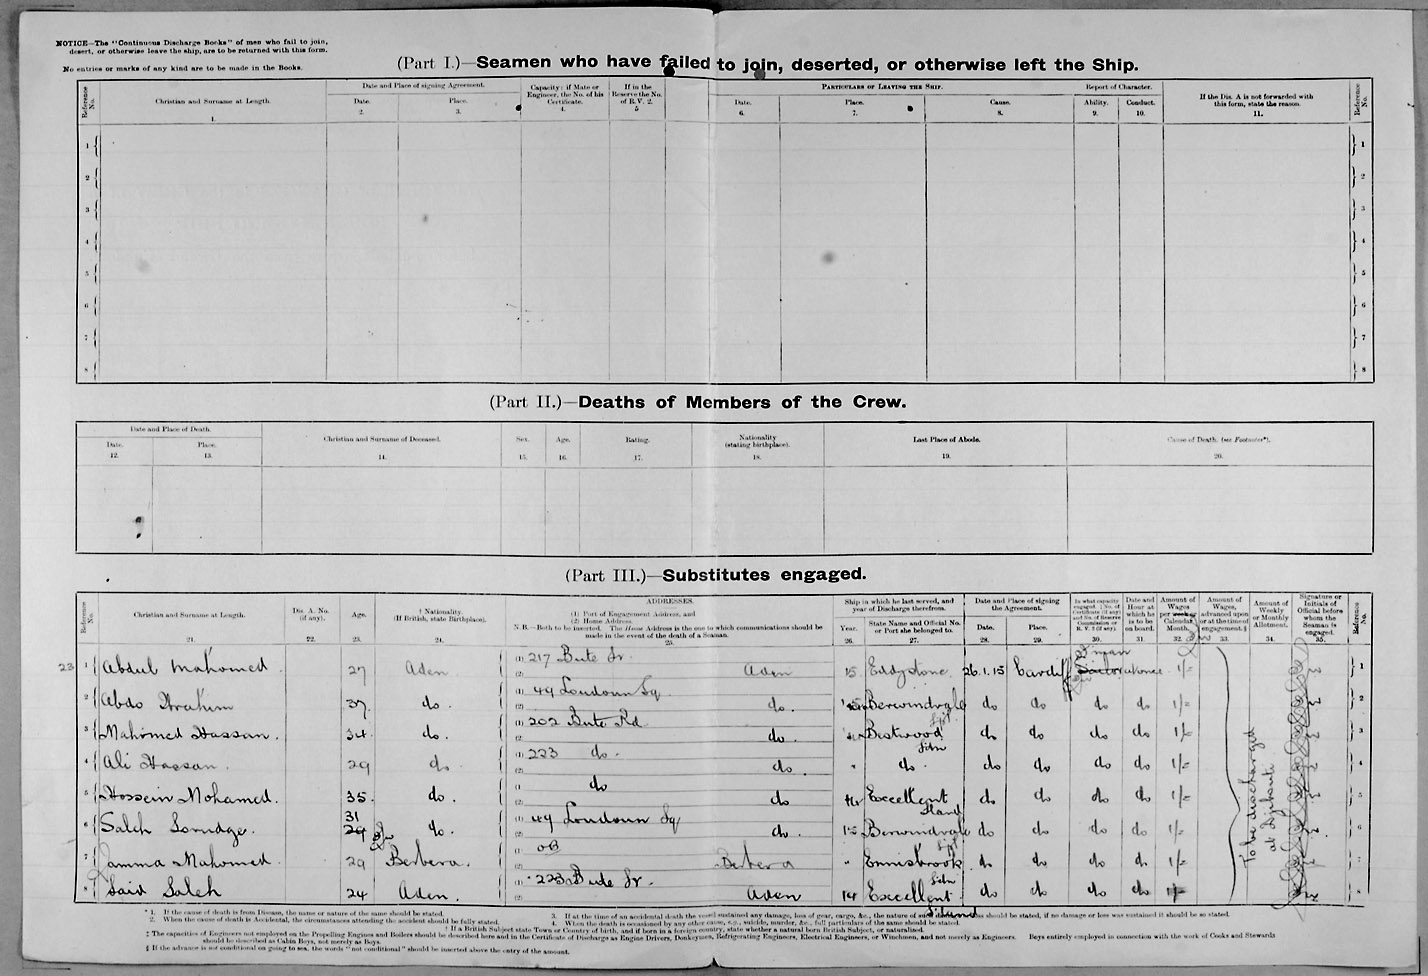 NOTICE—The "Continuous Discharge Books" of men who fail to join,
desert, or otherwise leave the ship, are to be returned with this form.
No entries or marks of any kind are to be made in the Books.
(Part I.)—Seamen who have failed to join, deserted, or otherwise left the Ship.
Reference No. Christian and Surname at Length. 1. Date and Place of signing Agreement. Date. 2. Place. 3. Capacity: if Mate or Engineer, the No. of his Certificate. 4. If in the Reserve the No. of R.V. 2. 5 Particulars of Leaving the Ship. Date. 6. Place. 7. Cause. 8. Report of Character. Ability. 9. Conduct. 10. If the Dis. A is not forwarded with this form, state the reason. 11. Reference No.
1 1
2 2
3 3
4 4
5 5
6 6
7 7
8 8
(Part II.)—Deaths of Members of the Crew.
Date and Place of Death. Date. 12. Place. 13. Christian and Surname of Deceased. 14. Sex. 15. Age. 16. Rating. 17. Nationality (stating birthplace). 18. Last Place of Abode. 19. Cause of Death. (see Footnote*). 20.
(Part III.)—Substitutes engaged.
Reference No. Christian and Surname at Length. 21. Dis. A. No. (if any). 22. Age. 23. † Nationality. (If British, state Birthplace). 24. ADDRESSES. (1) Port of Engagement Address, and (2) Home Address. N.B.—Both to be inserted. The Home Address is the one to which communications should be made in the event of the death of a Seaman. 25. Ship in which he last served, and year of Discharge therefrom. Year. 26. State Name and Official No. or Port she belonged to. 27. Date and Place of signing the Agreement. Date. 28. Place. 29. In what capacity engaged 30. Date and Hour at which he is to be on board. 31. Amount of Wages per Calendar Month. 32. Amount of Wages, advanced upon or at the time of engagement.§ 33. Amount of Weekly or Monthly Allotment. 34. Signature or Initials of Official before whom the Seaman is engaged. 35. Reference No.
23 1 Abdul Mahomed 27 Aden (1) 217 Bute Sr. (2) Aden 15 Eddystone 26.1.15 Cardiff 1/= 1
2 Abdo Ibrahim 37 do. (1) 49 Loudoun Sq (2) do. Berwindvale Lpl. do do do do 1/= 2
3 Mahomed Hassan. 34 do. (1) 202 Bute Rd (2) do. Bestwood do do do do 1/= 3
4 Ali Hassan. 29 do (1) 223 do. (2) do. " do. do do do do 1/= 4
5 Hossein Mohamed. 35. do. (1) do (2) do 14 Excellent do do do do 1/= 5
6 Saleh 31 29 do. (1) 49 Loudoun Sq (2) do. 15 Berwindvale Lpl do do do do 1/= 6
7 Jamma Mahomed 29 Berbera. (1) OB (2) Berbera " Ennisbrook do do do do 1/= 7
8 Said Saleh 24 Aden. (1) 223 Bute Sr. (2) Aden 14 Excellent do do do do 1/= 8
To be discharged
at Djibouti
* 1. If the cause of death is from Disease, the name or nature of the same should be stated.
2. When the cause of death is Accidental, the circumstances attending the accident should be fully stated.
3. If at the time of an accidental death the vessel sustained any damage, loss of gear, cargo, &c., the nature of such should be stated, if no damage or loss was sustained it should be so stated.
4. When the death is occasioned by any other cause, e.g., suicide, murder, &c., full particulars of the same should be stated.
† If a British Subject state Town or Country of birth, and if born in a foreign country, state whether a natural born British Subject, or naturalised.
‡ The capacities of Engineers not employed on the Propelling Engines and Boilers should be described here and in the Certificate of Discharge as Engine Drivers, Donkeymen, Refrigerating Engineers, Electrical Engineers, or Winchmen, and not merely as Engineers. Boys entirely employed in connection with the work of Cooks and Stewards
should be described as Cabin Boys, not merely as Boys.
§ If the advance is not conditional on going to sea, the words "not conditional" should be inserted above the entry of the amount.